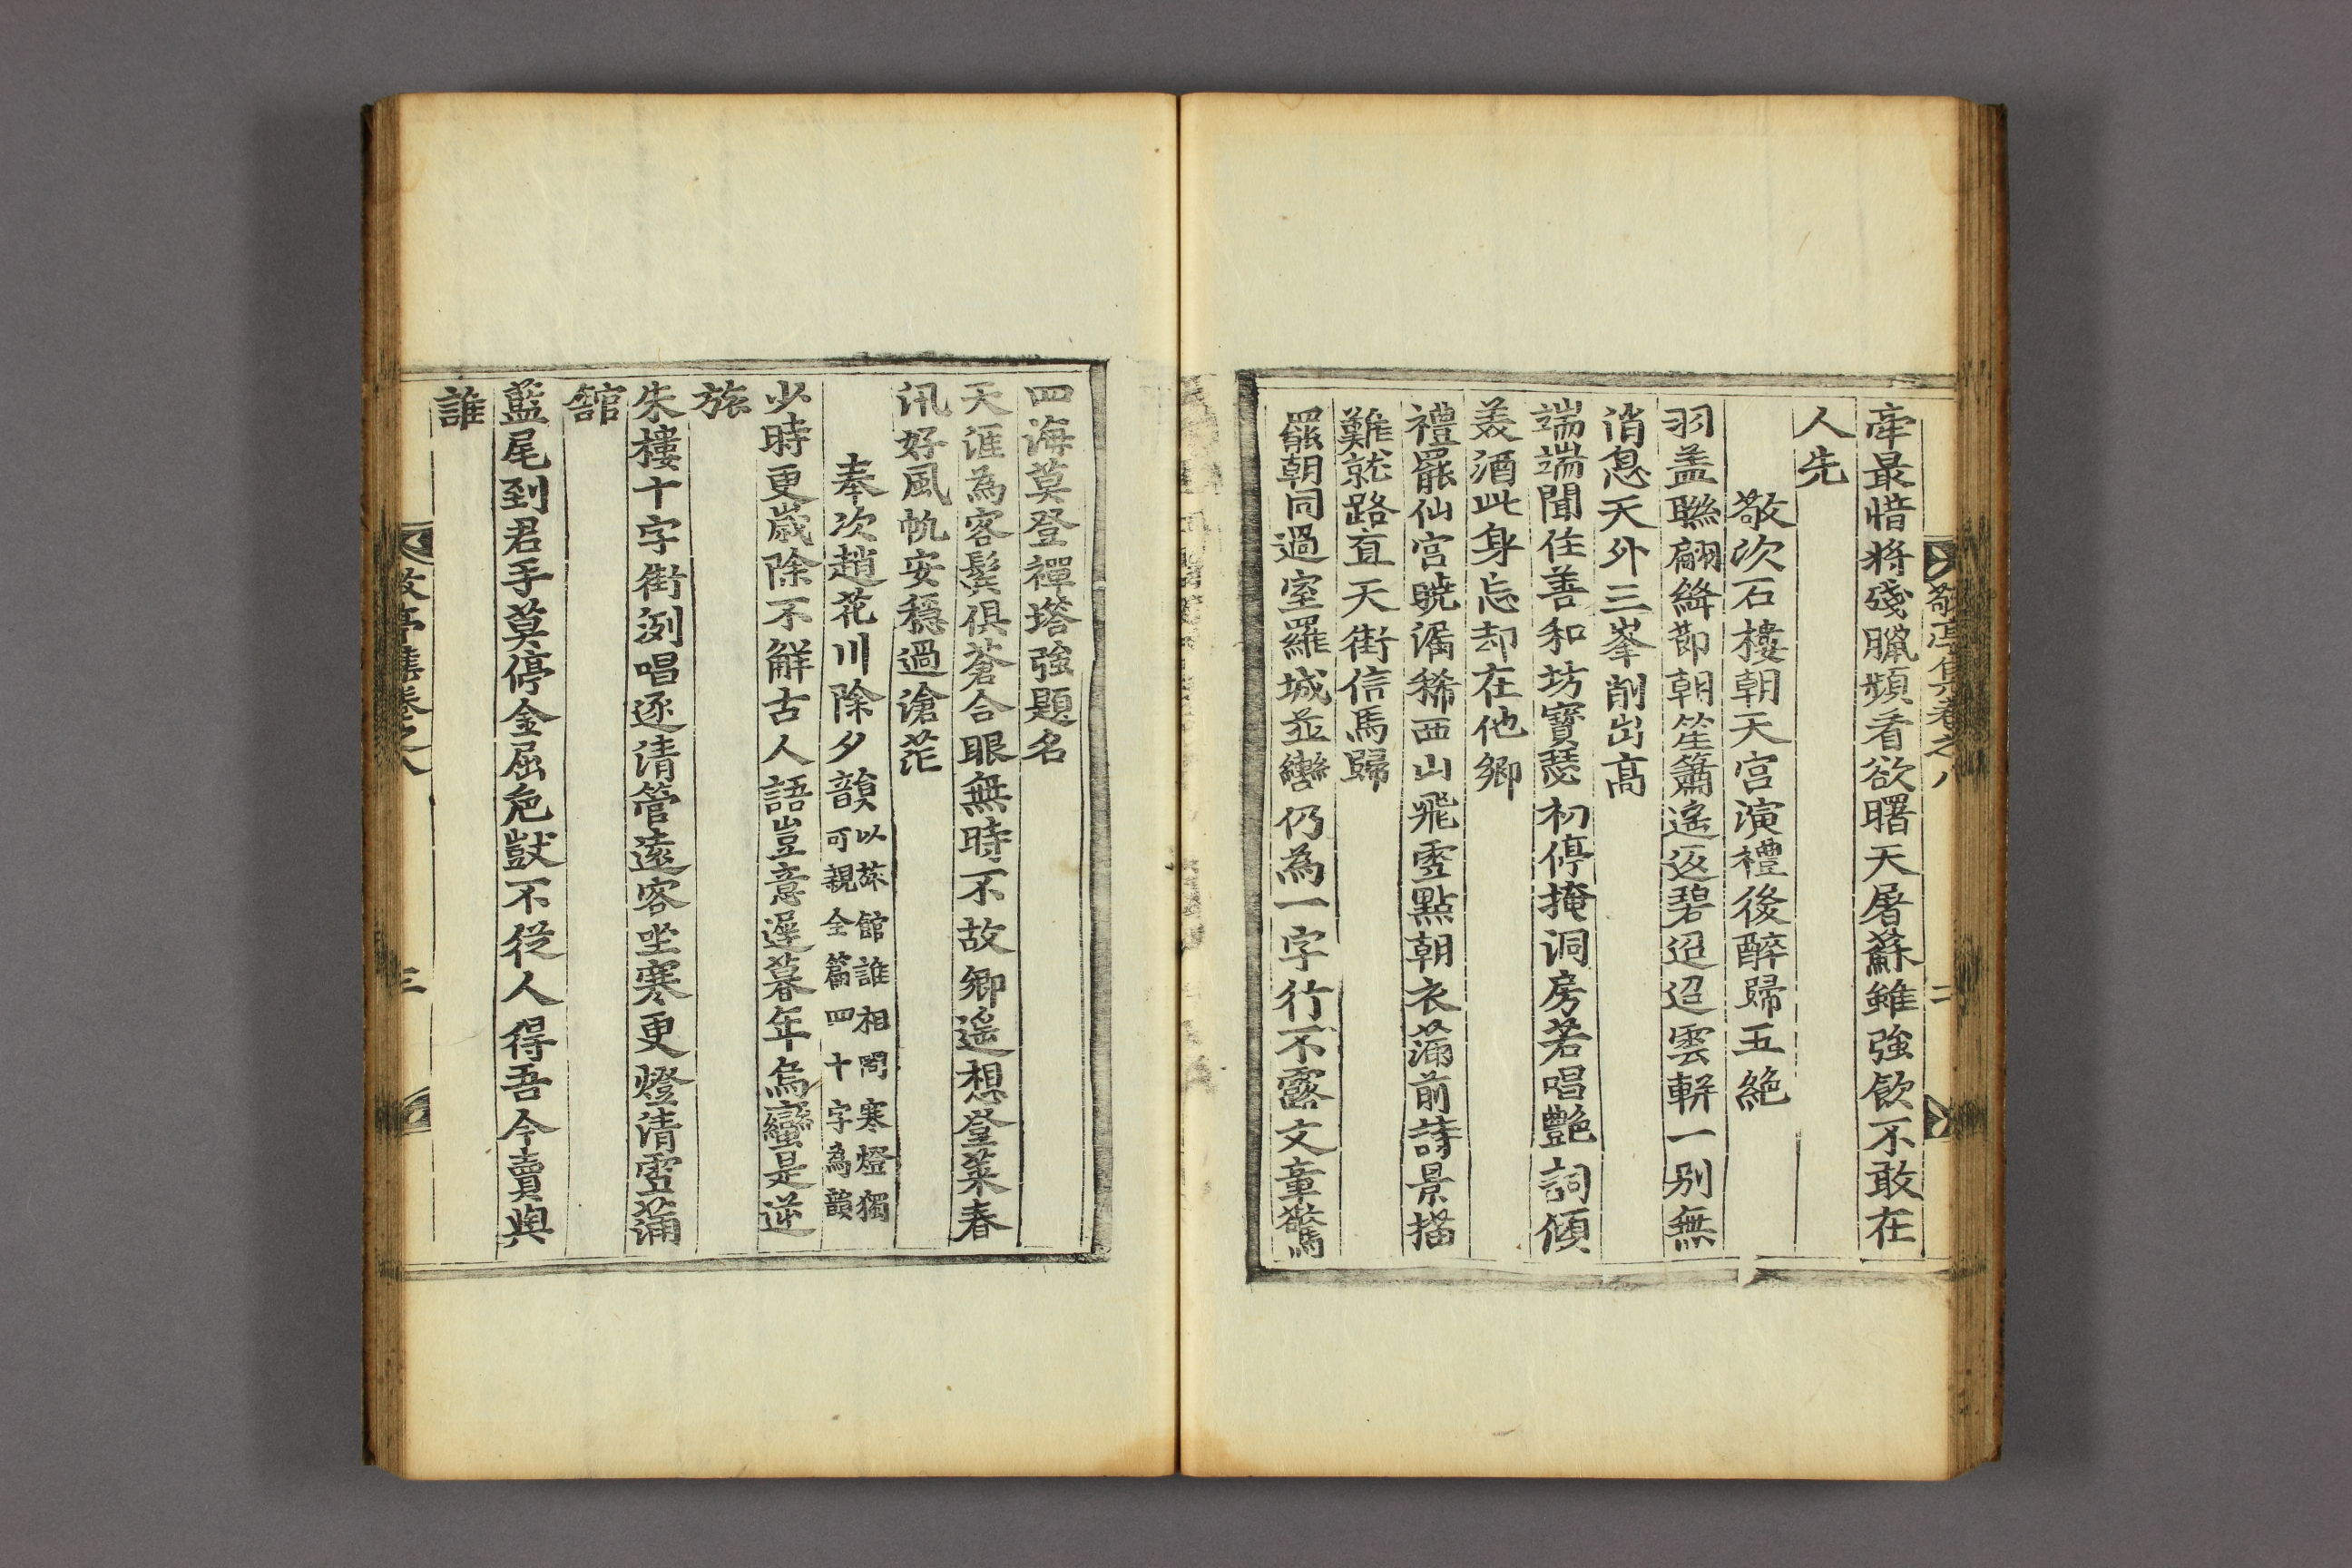 敬亭集卷之八
二
牽最惜將殘臘頻看欲曙天屠蘇雖強飮不敢在
人先
敬次石樓朝天宮演禮後醉歸五絶
羽盖聯翩絳節朝笙簫遙返碧迢迢雲軿一别無
消息天外三峯削出高
端端聞住善和坊寶瑟初停掩洞房若唱艶詞傾
美酒此身忘却在他鄉
禮罷仙宮曉漏稀西山飛雪點朝衣滿前詩景描
難就路直天街信馬歸
罷朝同過室羅城並轡仍為一字行不露文章驚
四海莫登禪塔強題名
天涯為客鬂俱蒼合眼無時不故鄉遥想登萊春
汛好風帆安穩過滄茫
奉次趙花川除夕韻以旅館誰相問寒燈獨
可親全篇四十字為韻
少時更歲除不解古人語豈意遲暮年烏蠻是逆
旅
朱樓十字街冽唱逐淸管遠客坐寒更燈清雪滿
舘
藍尾到君手莫停金屈巵獃不從人得吾今賣與
誰
敬亭集卷之八
三